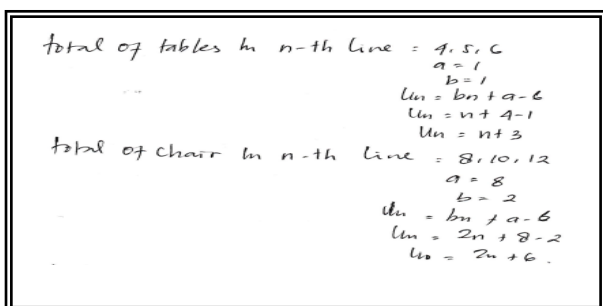 total of tables in n-th line = 4, 5, 6
a = 1
b = 1
Un = bn + a - b
Un = n + 4 - 1
Un = n + 3
total of chair in n-th line = 8, 10, 12
a = 8
b = 2
Un = bn + a - b
Un = 2n + 8 - 2
Un = 2n + 6.